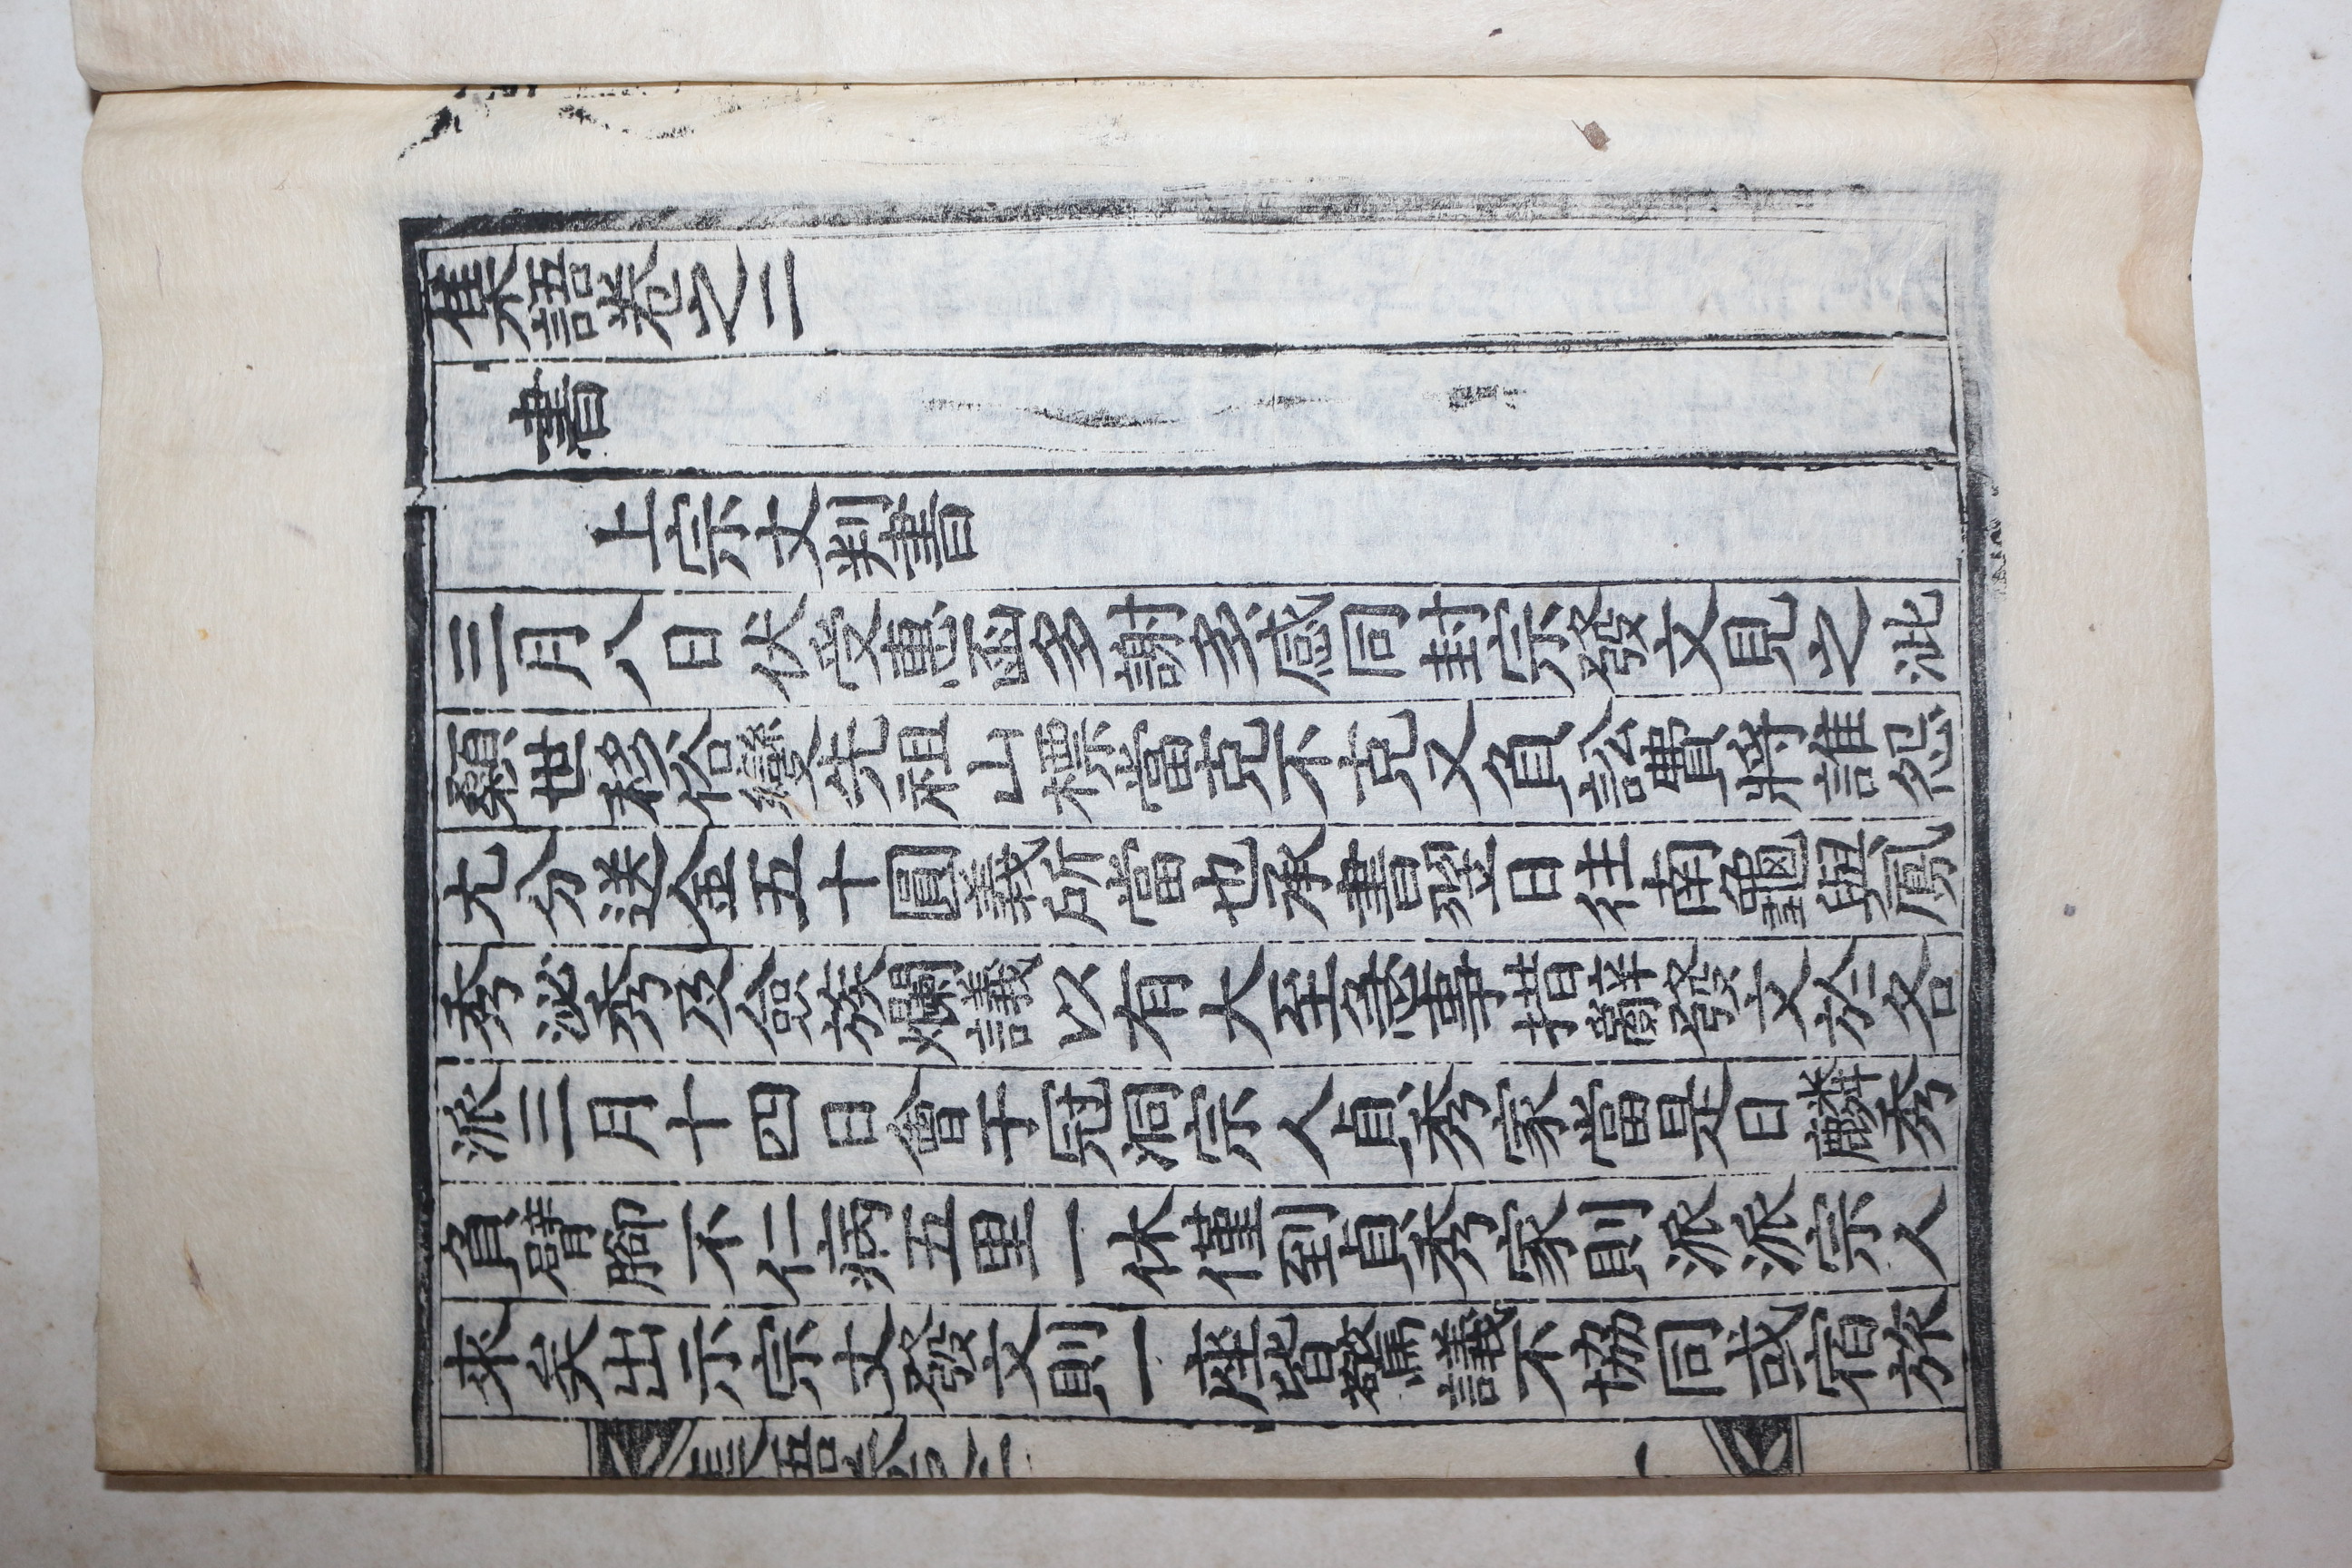 集語卷之二
書
上宗丈判書
三月八日伏受惠函多謝多感同封宗發文見之泚
顙世移俗變先祖山標當克不克又負訟費將誰怨
尤分送金五十圓義所當也承書翌日往南龜與鳳
秀泌秀及僉族爛議以有大至急事措辭發文於各
派三月十四日會于冠洞宗人貞秀家當是日麟秀
負臂脚不仁病五里一休僅到貞秀家則派派宗人
来矣出示宗丈發文則一座皆驚議不協同或宿旅
集語卷之二